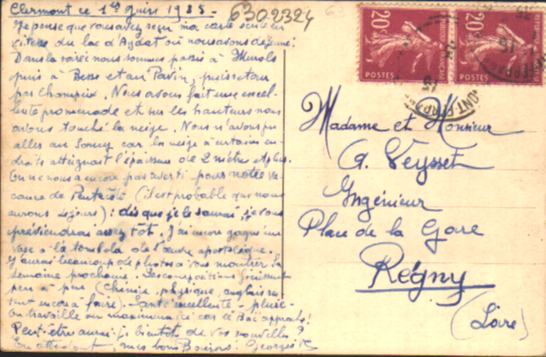 Clermont ce 1er Juin 1935 -
6302324
Je pense que vous avez reçu ma carte
du lac d'Aydat où nous avons déjeuné.
Dans la soirée nous sommes passés à Murols
puis à Besse et au Pavin, puis retour
par Champeix. Nous avons fait une excel-
lente promenade et sur les hauteurs nous
avons touché la neige. Nous n'avons pu
aller au Sancy car la neige à certains en-
droits atteignait l'épaisseur de 2 mètres et plus.
On ne nous a encore pas averti pour notre
de Pentecôte (il est probable que nous
aurons 2 jours) : dès que je le saurai, je vous
préviendrai aussitôt. J'ai encore gagné un
vase à la tombola de l'œuvre apostolique.
Y aura beaucoup de photos à vous montrer la
semaine prochaine. Les compositions finissent
peu à peu (Chimie, physique, anglais
encore à faire). Santé excellente -
On travaille au maximum ici car le Bac approche!
Peut-être aurai-je bientôt de vos nouvelles?
En attendant, mes bons Baisers. Georges
20c
POSTES
20c
POSTES
Madame et Monsieur
A. Veysset
Ingénieur
Place de la Gare
Régny
(Loire)